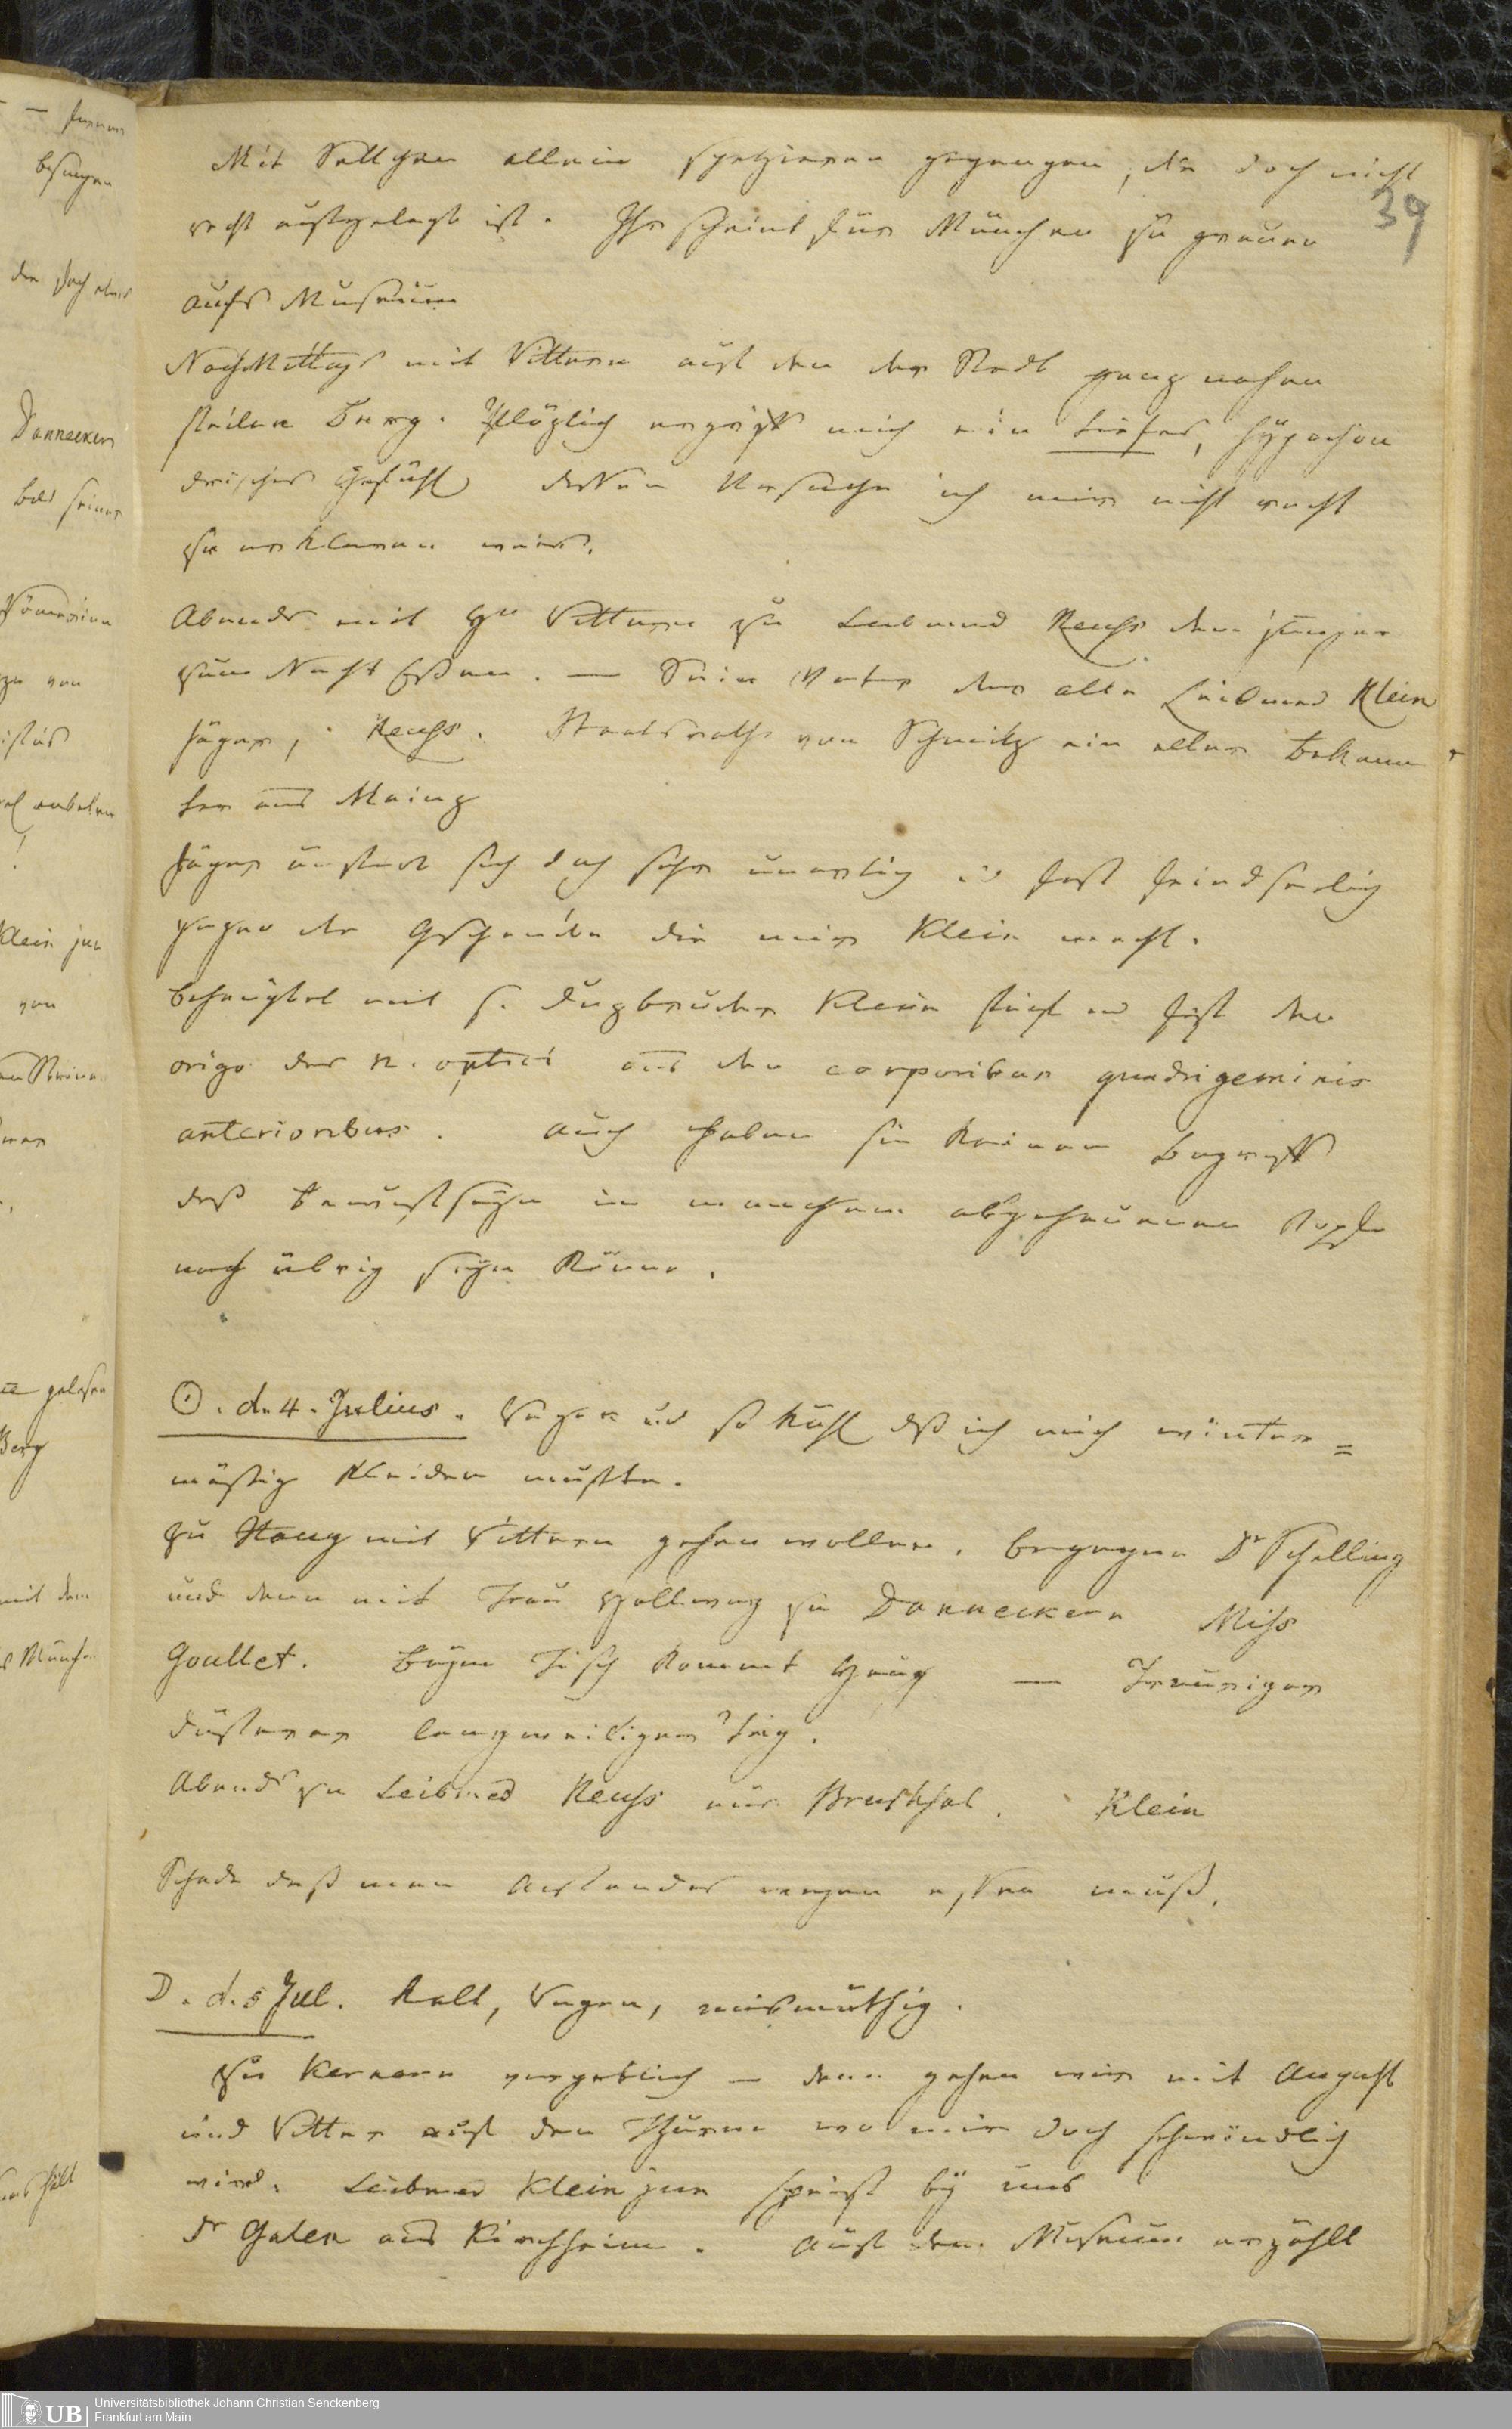 Mit Settchen allein spatzieren gegangen, die doch nicht
39
recht aufgelegt ist. Ihr scheint für München zu grauen
aufs Museum
NachMittags mit Vettern auf den der Stadt ganz nahen
steilen Berg. Plözlich ergrift mich ein tiefes, hÿpochon
drisches Gefühl dessen Ursache ich mir nicht recht
zu erklaren weis.
Abends mit Hn Vettern zu Leibmed Reuss dem jünger
zum Nacht Eßen. — Sein Vater der alte Leibmed Klein
Jäger, Reuss. Staatsrath von Schmitz ein alter Bekann
ter aus Mainz
Jäger äussert sich doch sehr unartig u fast feindseelig
gegen die Geschenke die mir Klein macht.
behauptet mit s. Duzbruder Klein steif u fest den
origo des n. optici aus den corporibus quadrigeminis
anterioribus. auch haben sie keinen Begriff
daß Bewustseÿn in manchem abgehauenen Kopfe
noch übrig seÿn könne.
☉. d. 4. Julius. Regen und so kühl dß ich mich winter=
mässig kleiden musste.
Zu Haug mit Vettern gehen wollen. begegne Dr Schelling
und dann mit Frau Hellwag zu Danneckern Miss
Goullet. Beÿm Tisch kommt Haug — Trauriger
düsterer langweiliger Tag.
Abends zu Leibmed Reuss aus Bruchsal. Klein
Schade daß man Anstandes wegen essen muß.
☽. d. 5 Jul. Kalt, Regen, mismüthig.
Zu Kernern vergeblich — dann gehen wir mit August
und Vetter auf den Thurm wo mir doch schwindlich
wird. Leibmed Klein jun speist bÿ uns
Dr Galen aus Kirchheim. Auf dem Museum erzählt
Universitätsbibliothek Johann Christian Senckenberg
Frankfurt am Main
UB